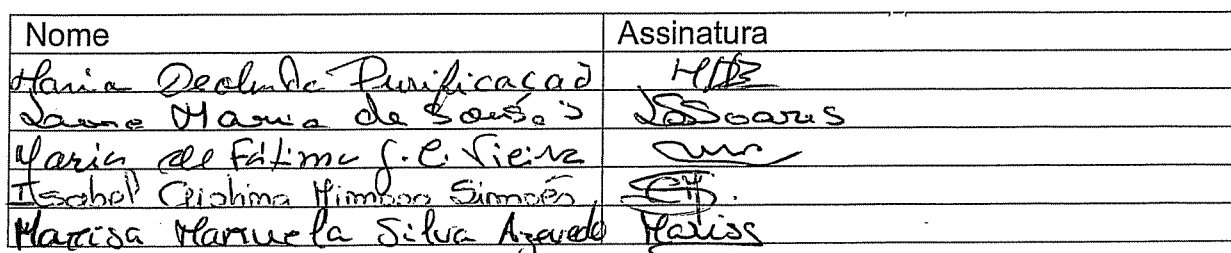 Nome Assinatura
Maria Deolinda Purificação
Maria de Sousa S LSSoares
Maria de Fátima S. C. Vieira
Isabel Cristina Simões
Marisa Manuela Silva Azevedo Marisa